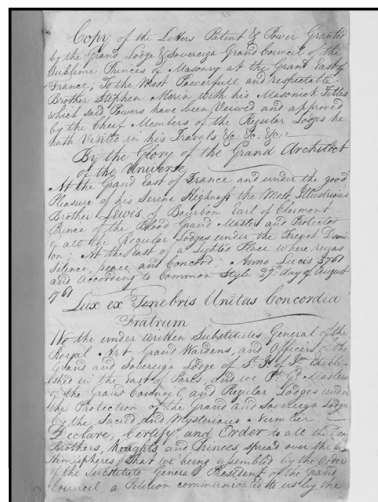 Copy of the Letters Patent & Power Granted
by the Grand Lodge & Sovereign Grand Council of the
Sublime Princes of Masonry at the Grand East of
France, To the Most Powerfull and respectable
Brother Stephen Morin with his Masonick Titles
which said Powers have been Viewed and approved
by the Cheif Members of the Regular Lodges he
hath Visited in his Travels &c. &c. &c.
By the Glory of the Grand Architect
of the Universe
At the Grand East of France and under the good
Pleasure of his Serene Highness the Most Illustrious
Brother Lewis of Bourbon Earl of Clermont
Prince of the Blood Grand Master and Protector
of all the Regular Lodges under the French
At the East of a Lighted Place where reigns
Silence, Peace and Concord Anno Lucis 5761
and according to Common Style 27th day of August
1761
Lux ex Tenebris Unitas Concordia
Fratrum
We the under written Substitutes General of the
Royal Art Grand Wardens, and Officers of the
Grand and Sovereign Lodge of St
in the East of Paris And we Masters
of the Grand Council and Regular Lodges under
the Protection of the Grand and Sovereign Lodge
by the Sacred and Mysterious Number
Declare, Certify and Order to all the
Brothers, Knights and Princes spread over the
Hemispheres, That we being assembled by the Order
of the Substitute General President of the Grand
Council a Petition communicated to us by the